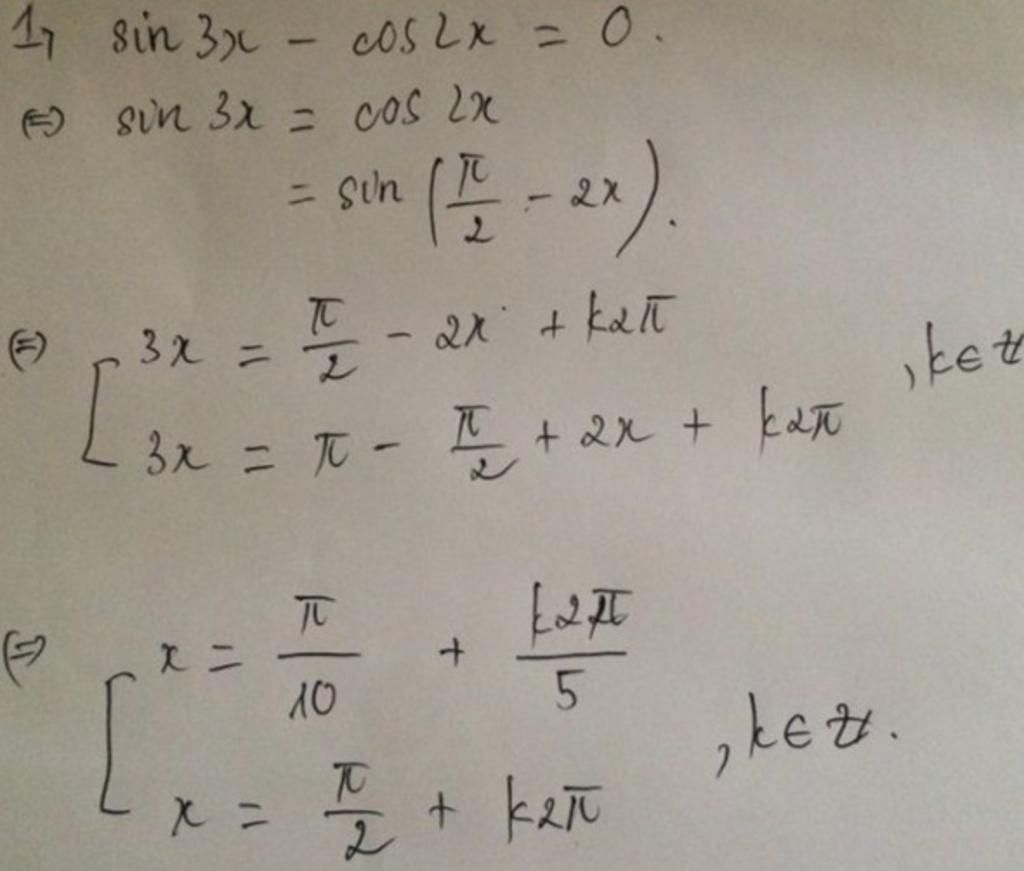 1, sin 3x - cos 2x = 0.
⇔ sin 3x = cos 2x
= sin (π/2 - 2x).
⇔ [ 3x = π/2 - 2x + k2π
3x = π - π/2 + 2x + k2π , k ∈ Z
⇔ [ x = π/10 + k2π/5
x = π/2 + k2π , k ∈ Z.